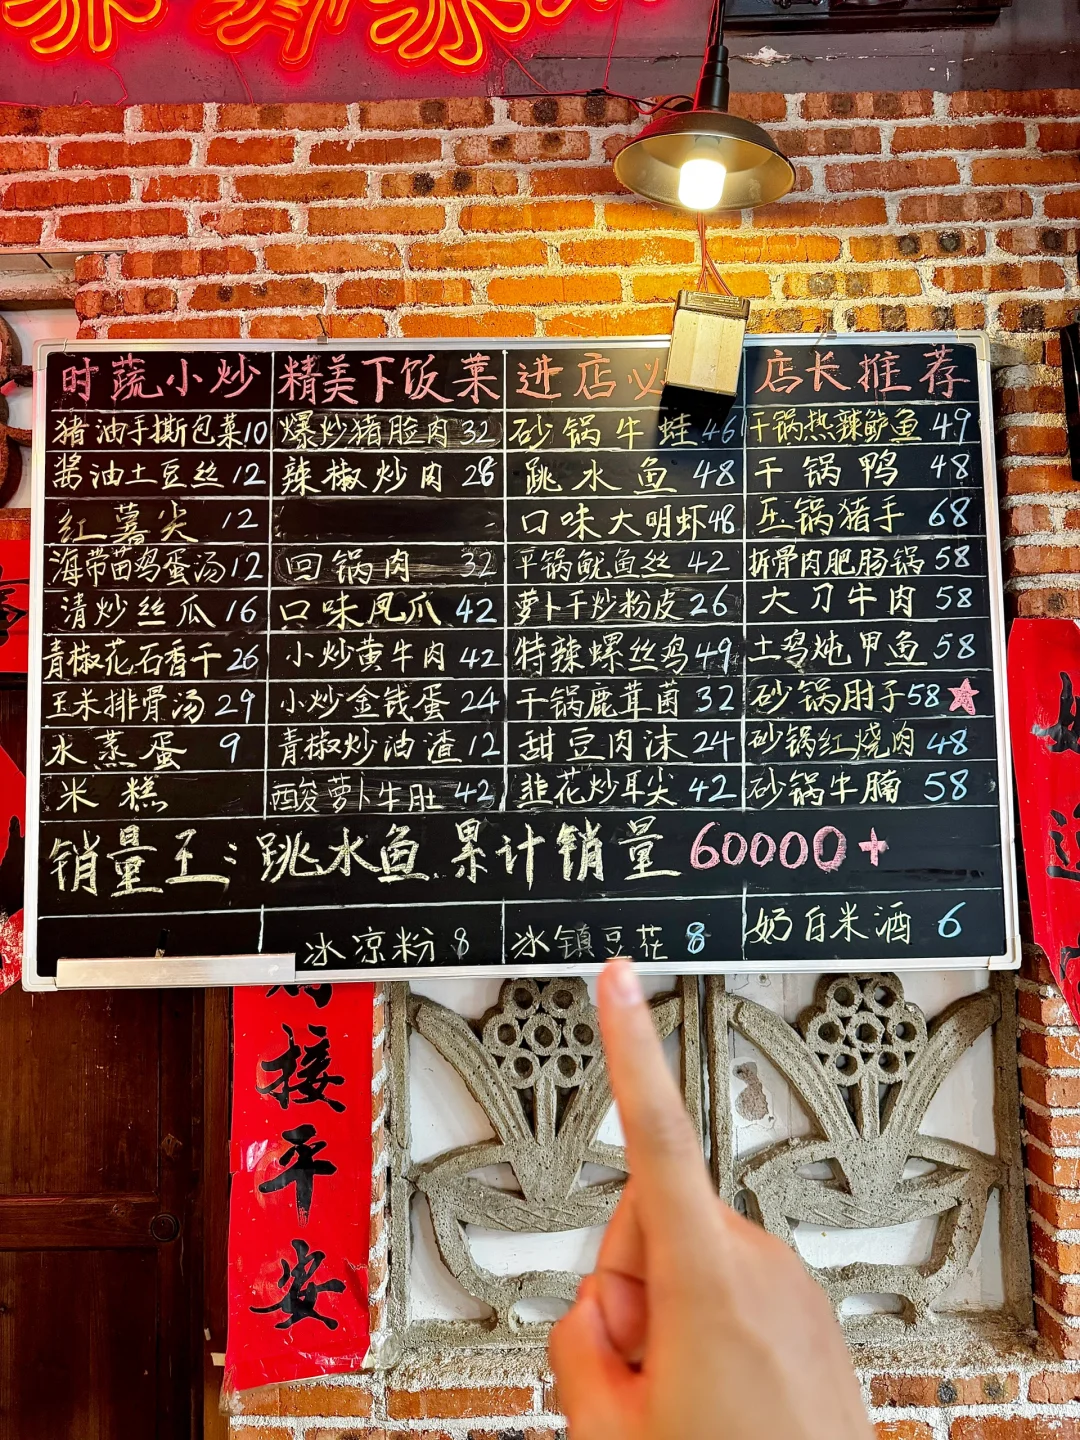 时蔬小炒 精美下饭菜 进店必 店长推荐
猪油手撕包菜10 爆炒猪脸肉32 砂锅牛蛙46 干锅热辣鲈鱼49
酱油土豆丝12 辣椒炒肉28 跳水鱼48 干锅鸭48
红薯尖12 口味大明虾48 压锅猪手68
海带苗鸡蛋汤12 回锅肉32 平锅鱿鱼丝42 拆骨肉肥肠锅58
清炒丝瓜16 口味凤爪42 萝卜干炒粉皮26 大刀牛肉58
青椒花石香干26 小炒黄牛肉42 特辣螺丝鸡49 土鸡炖甲鱼58
玉米排骨汤29 小炒金钱蛋24 干锅鹿茸菌32 砂锅肘子58
水蒸蛋9 青椒炒油渣12 甜豆肉沫24 砂锅红烧肉48
米糕 酸萝卜牛肚42 韭花炒耳尖42 砂锅牛腩58
销量王：跳水鱼.累计销量60000+
冰凉粉8 冰镇豆花8 奶白米酒6
接平安